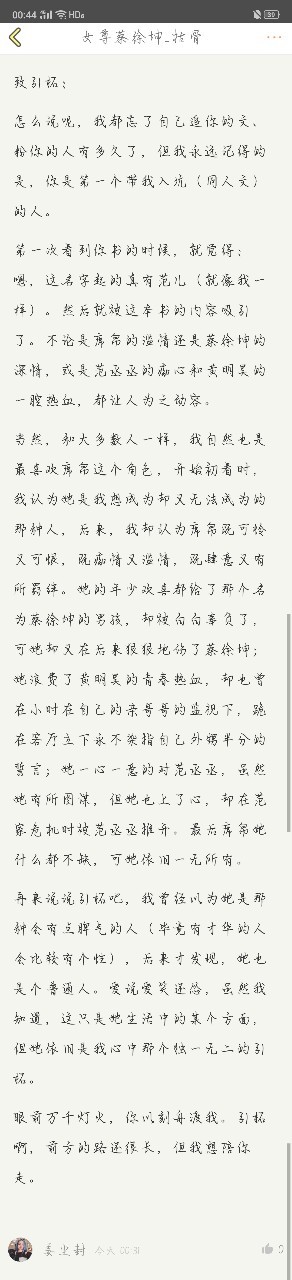 00:44
HD₆
女尊蔡徐坤_枯骨
致引柘：
怎么说呢，我都忘了自己追你的文、
粉你的人有多久了，但我永远记得的
是，你是第一个带我入坑（同人文）
的人。
第一次看到你书的时候，就觉得：
嗯，这名字起的真有范儿（就像我一
样）。然后就被这本书的内容吸引
了。不论是席帘的滥情还是蔡徐坤的
深情，或是范丞丞的痴心和黄明昊的
一腔热血，都让人为之动容。
当然，和大多数人一样，我自然也是
最喜欢席帘这个角色，开始初看时，
我认为她是我想成为却又无法成为的
那种人，后来，我却认为席帘既可怜
又可恨，既痴情又滥情，既肆意又有
所羁绊。她的年少欢喜都给了那个名
为蔡徐坤的男孩，却被白白辜负了，
可她却又在后来狠狠地伤了蔡徐坤；
她浪费了黄明昊的青春热血，却也曾
在小时在自己的亲哥哥的监视下，跪
在客厅立下永不染指自己外甥半分的
誓言；她一心一意的对范丞丞，虽然
她有所图谋，但她也上了心，却在范
家危机时被范丞丞推开。最后席帘她
什么都不缺，可她依旧一无所有。
再来说说引柘吧，我曾经以为她是那
种会有点脾气的人（毕竟有才华的人
会比较有个性），后来才发现，她也
是个普通人。爱说爱笑还怂，虽然我
知道，这只是她生活中的某个方面，
但她依旧是我心中那个独一无二的引
柘。
眼前万千灯火，你以刻舟渡我。引柘
啊，前方的路还很长，但我想陪你
走。
姜尘封 今天 00:31